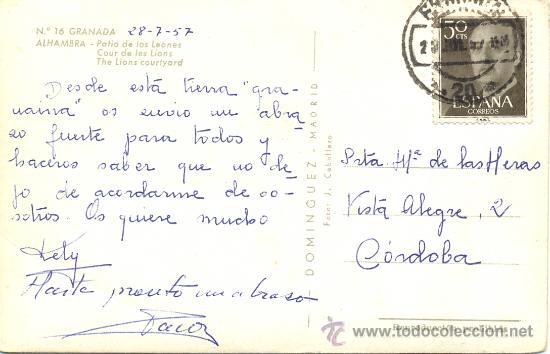 Nº 16 GRANADA 28-7-57
ALHAMBRA - Patio de los Leones
Cour de les Lions
The Lions courtyard
Desde esta tierra "gra-
naina" os envio un abra
zo fuerte para todos y
haceros saber que no de
jo de acordarme de vo-
sotros. Os quiere mucho
Lely
Hasta pronto un abrazo
DOMINGUEZ - MADRID
Foto: J. Caballero
50
CTS
ESPAÑA
CORREOS
Srta Mª de las Heras
Vista Alegre, 2
Córdoba
todocoleccion
www.todocoleccion.net